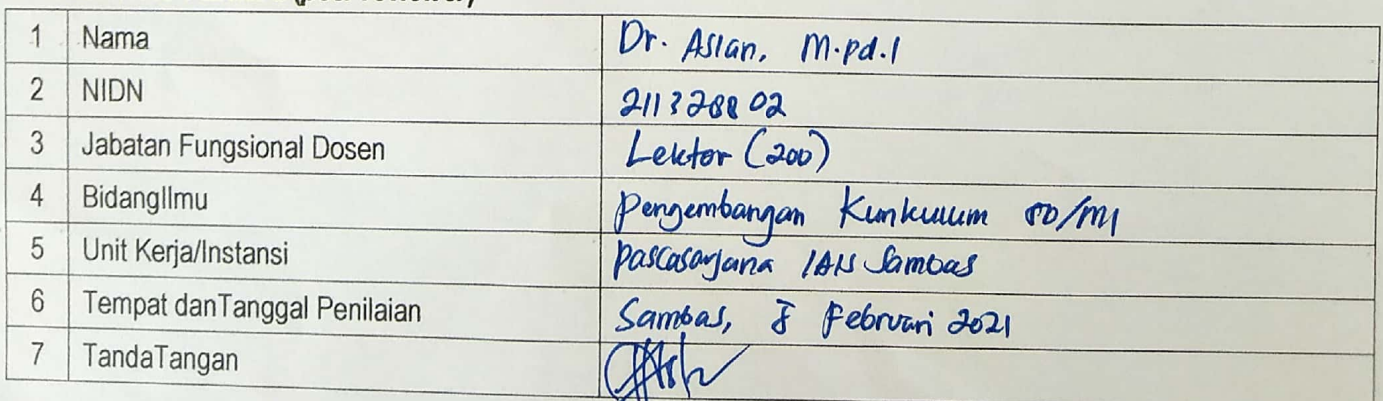 1 Nama Dr. Aslan, M.pd.I
2 NIDN
3 Jabatan Fungsional Dosen Lektor (200)
4 BidangIlmu Pengembangan Kurikulum SD/MI
5 Unit Kerja/Instansi Pascasarjana IAIS Sambas
6 Tempat danTanggal Penilaian Sambas, 8 Februari 2021
7 TandaTangan